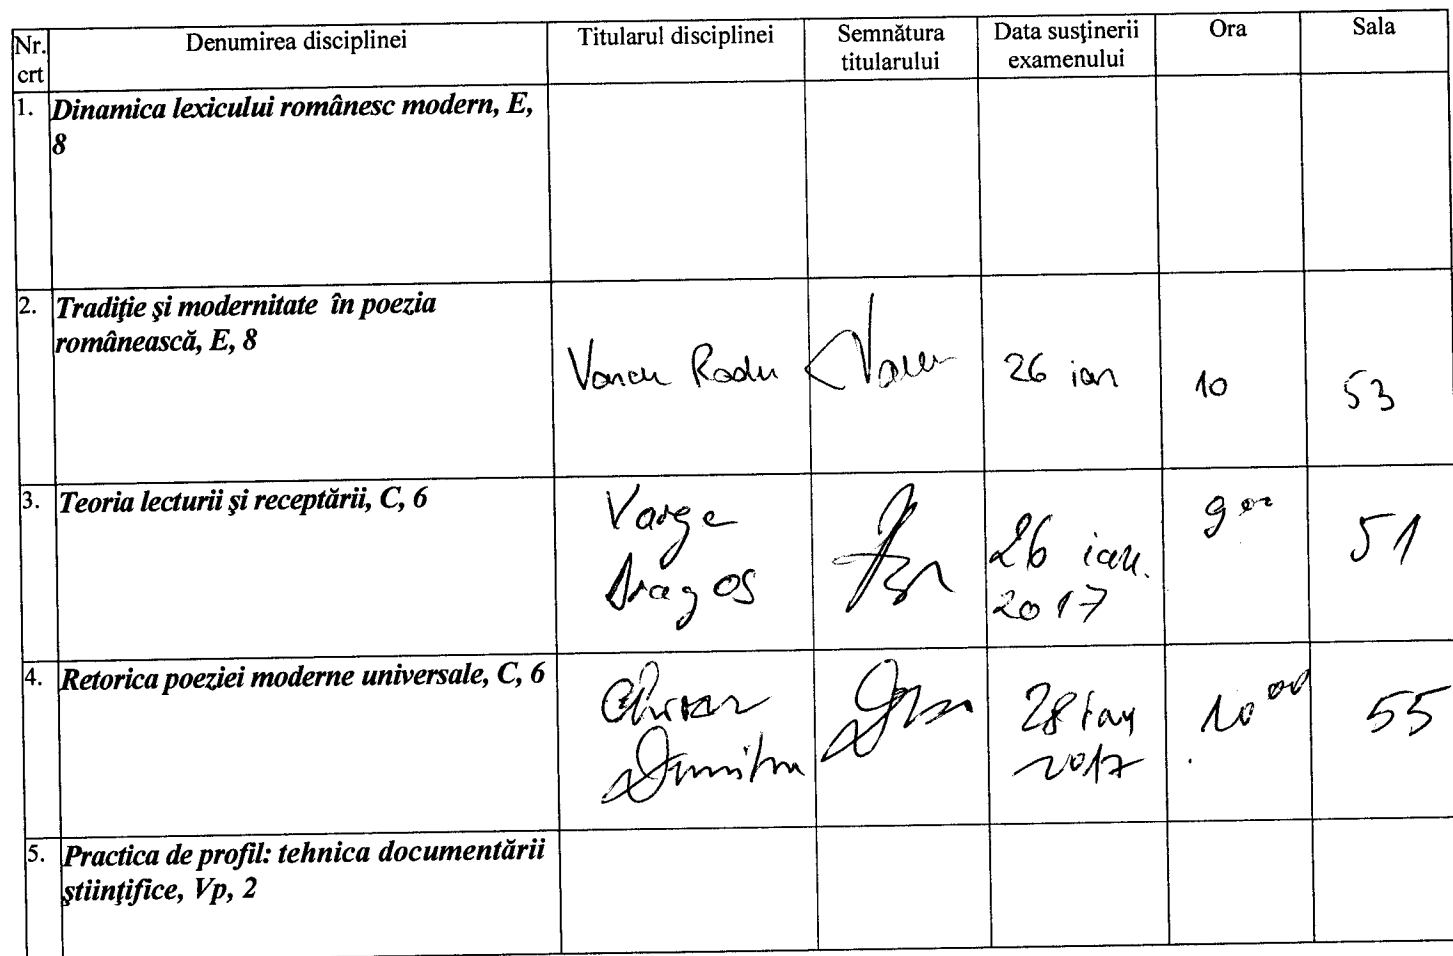 Nr. crt
Denumirea disciplinei
Titularul disciplinei
Semnătura titularului
Data susţinerii examenului
Ora
Sala
1.
Dinamica lexicului românesc modern, E,
8
2.
Tradiţie şi modernitate în poezia
românească, E, 8
Vancu Radu
26 ian
10
53
3.
Teoria lecturii şi receptării, C, 6
Varga
Dragos
26 ian.
2017
9 00
51
4.
Retorica poeziei moderne universale, C, 6
Dumitru
28 ian
2017
10 00
55
5.
Practica de profil: tehnica documentării
ştiinţifice, Vp, 2